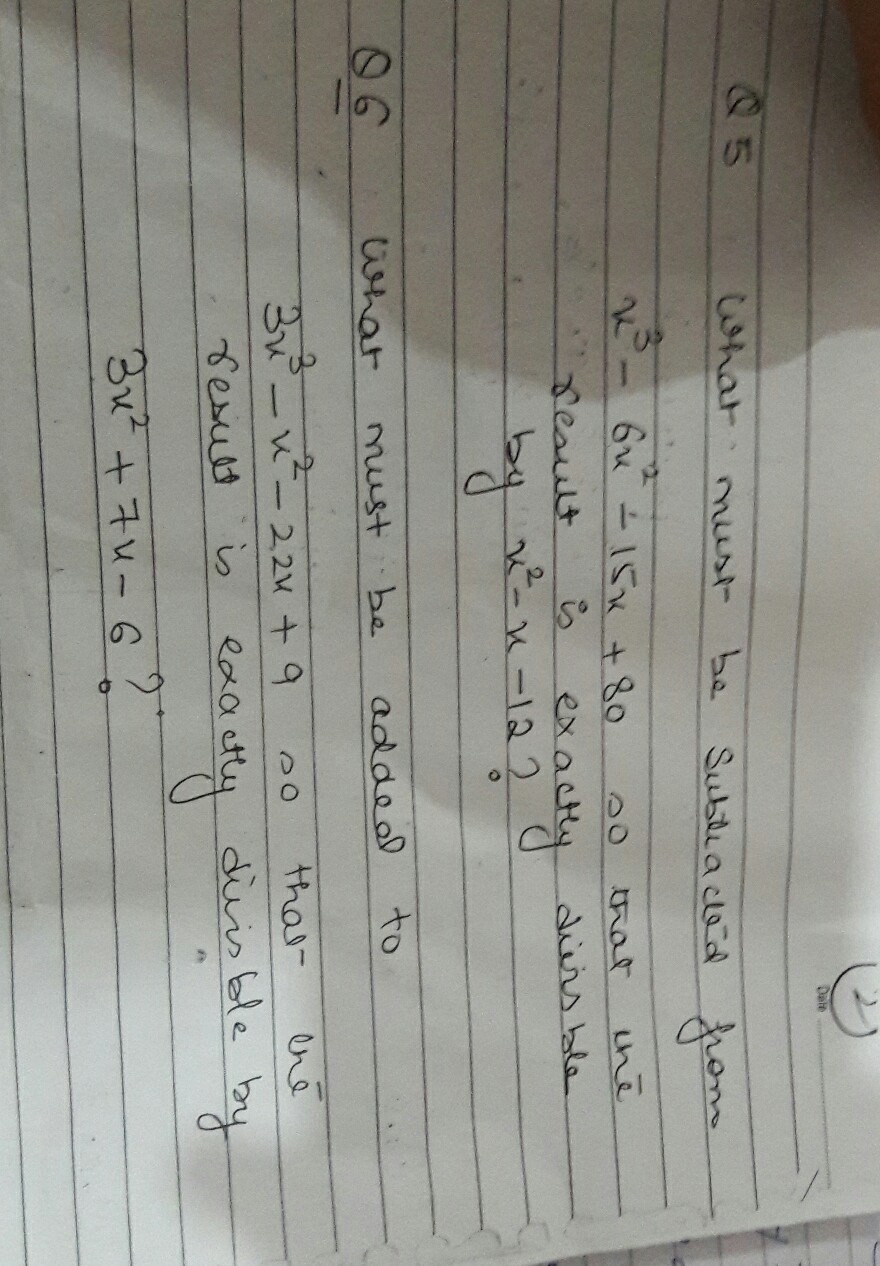 (2)
Date
Q5 What must be Subtracted from
x³ - 6x² - 15x + 80 so that the
result is exactly divisble
by x² - x - 12?
Q6 What must be added to
3x³ - x² - 22x + 9 so that the
result is exactly divisble by
3x² + 7x - 6?